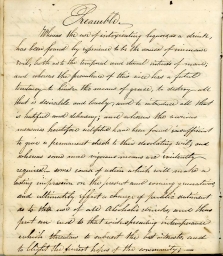 Preamble.
Whereas the use of intoxicating liquors as a drink,
has been found by experience to be the source of immense
evil, both as to the temporal and eternal interests of man;
and where the prevalence of this vice has a fatal
tendency to hinder the means of grace, to destroy all
that is desirable and lovely, and to introduce all that
is hateful and debasing; and whereas the various
measures heretofore adopted have been found insufficient
to give a permanent check to this desolating evil, and
whereas some more vigorous means are evidently
required— some course of action which will make a
lasting impression on the present and coming generations,
and ultimately effect a change of public sentiment
as to the use of all Alcoholic drinks, and thus
put an end to that wide spreading intemperance
which threatens to subvert the best interests and
to blight the fondest hopes of the community;